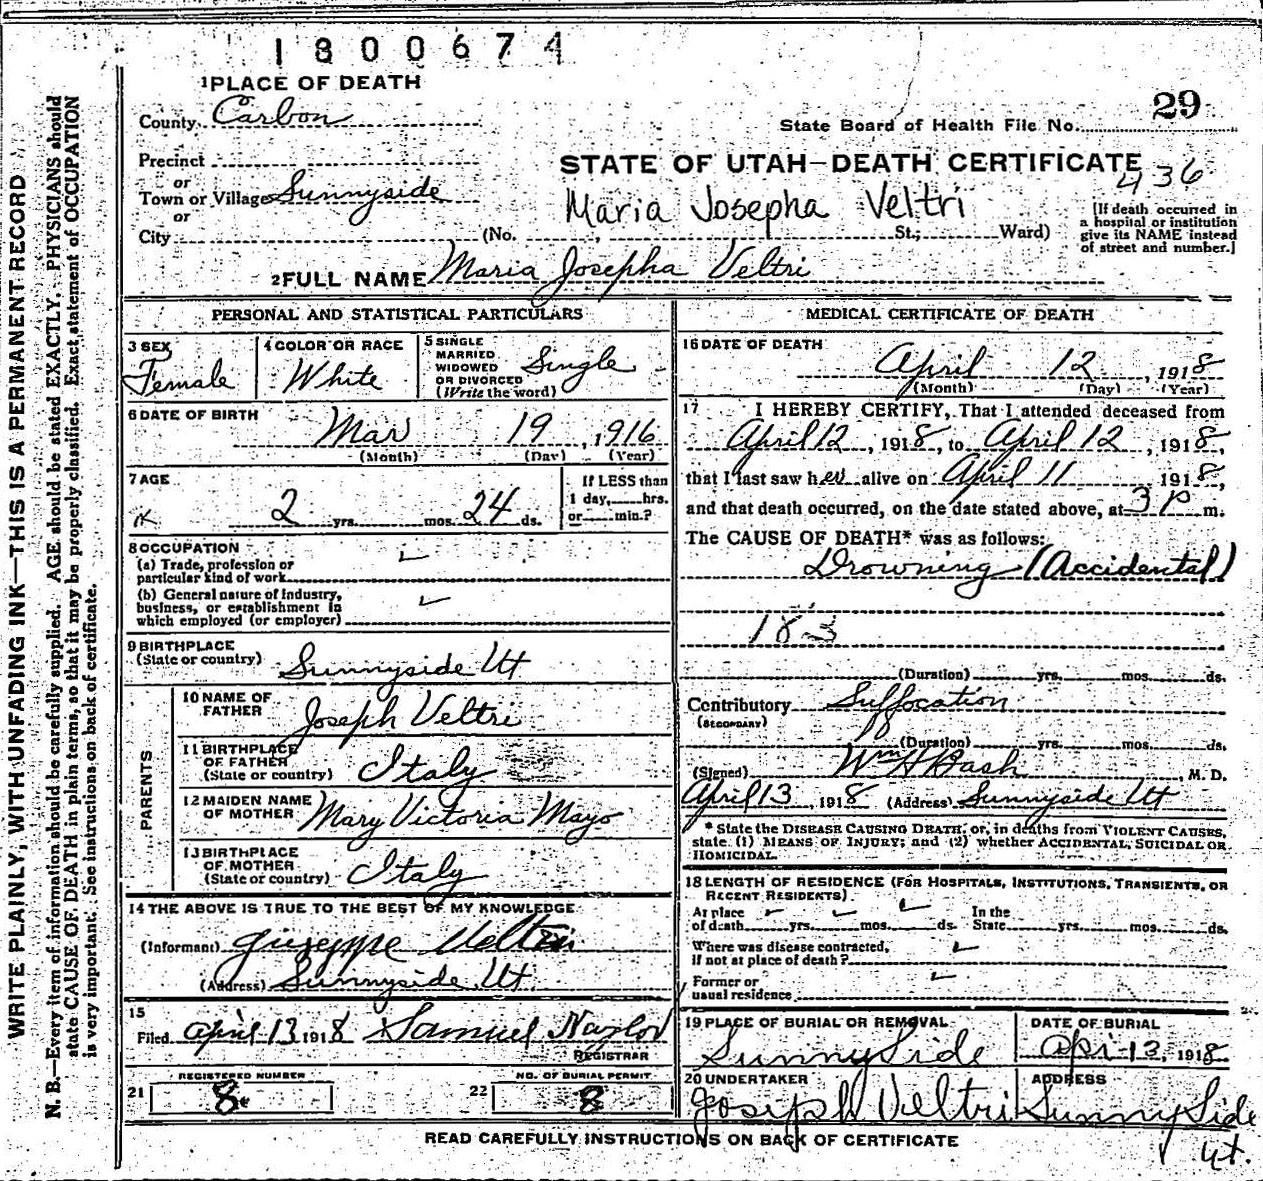 1800674
1 PLACE OF DEATH
County Carbon
29
State Board of Health File No.
Precinct
STATE OF UTAH—DEATH CERTIFICATE
436
or
Town or Village Sunnyside
Maria Josepha Veltri
or
City (No. , St.; Ward)
[If death occurred in
a hospital or institution
give its NAME instead
of street and number.]
2 FULL NAME Maria Josepha Veltri
PERSONAL AND STATISTICAL PARTICULARS
3 SEX
Female
4 COLOR OR RACE
White
5 SINGLE
MARRIED
WIDOWED
OR DIVORCED
(Write the word)
Single
6 DATE OF BIRTH
Mar 19, 1916
(Month) (Day) (Year)
7 AGE
2 yrs. mos. 24 ds.
If LESS than
1 day, hrs.
or min.?
8 OCCUPATION
(a) Trade, profession or
particular kind of work
(b) General nature of industry,
business, or establishment in
which employed (or employer)
9 BIRTHPLACE
(State or country) Sunnyside Ut
PARENTS
10 NAME OF
FATHER Joseph Veltri
11 BIRTHPLACE
OF FATHER
(State or country) Italy
12 MAIDEN NAME
OF MOTHER Mary Victoria Mayo
13 BIRTHPLACE
OF MOTHER
(State or country) Italy
14 THE ABOVE IS TRUE TO THE BEST OF MY KNOWLEDGE
(Informant) Giuseppe Veltri
(Address) Sunnyside Ut.
15
Filed April 13 1918 Samuel Naylor
REGISTRAR
REGISTERED NUMBER
21 8
NO. OF BURIAL PERMIT
22 8
MEDICAL CERTIFICATE OF DEATH
16 DATE OF DEATH
April 12, 1918
(Month) (Day) (Year)
17 I HEREBY CERTIFY, That I attended deceased from
April 12, 1918, to April 12, 1918,
that I last saw her alive on April 11 1918,
and that death occurred, on the date stated above, at 3 P m.
The CAUSE OF DEATH* was as follows:
Drowning (Accidental)
183
(Duration) yrs. mos. ds.
Contributory Suffocation
(SECONDARY)
(Duration) yrs. mos. ds.
(Signed) Wm H Bash, M. D.
April 13, 1918 (Address) Sunnyside Ut
* State the DISEASE CAUSING DEATH, or, in deaths from VIOLENT CAUSES,
state (1) MEANS OF INJURY; and (2) whether ACCIDENTAL, SUICIDAL OR
HOMICIDAL.
18 LENGTH OF RESIDENCE (FOR HOSPITALS, INSTITUTIONS, TRANSIENTS, OR
RECENT RESIDENTS).
At place
of death yrs. mos. ds.
In the
State yrs. mos. ds.
Where was disease contracted,
if not at place of death?
Former or
usual residence
19 PLACE OF BURIAL OR REMOVAL
SunnySide
DATE OF BURIAL
Apr 13, 1918
20 UNDERTAKER
Joseph Veltri
ADDRESS
SunnySide
Ut.
READ CAREFULLY INSTRUCTIONS ON BACK OF CERTIFICATE
WRITE PLAINLY, WITH UNFADING INK—THIS IS A PERMANENT RECORD
N. B.—Every item of information should be carefully supplied. AGE should be stated EXACTLY. PHYSICIANS should
state CAUSE OF DEATH in plain terms, so that it may be properly classified. Exact statement of OCCUPATION
is very important. See instructions on back of certificate.